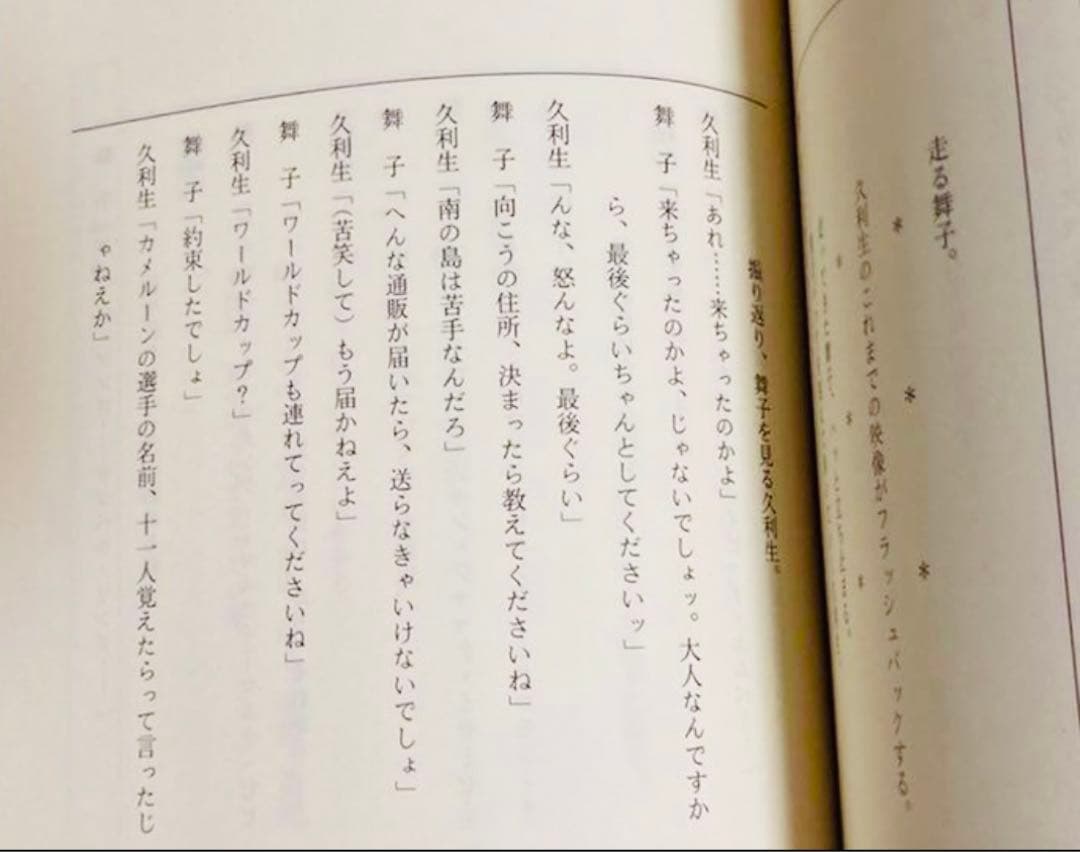 走る舞子。
＊　＊　＊
久利生のこれまでの映像がフラッシュバックする。
＊　＊　＊
振り返り、舞子を見る久利生。
久利生「あれ……来ちゃったのかよ」
舞　子「来ちゃったのかよ、じゃないでしょッ。大人なんですか
ら、最後ぐらいちゃんとしてくださいッ」
久利生「んな、怒んなよ。最後ぐらい」
舞　子「向こうの住所、決まったら教えてくださいね」
久利生「南の島は苦手なんだろ」
舞　子「へんな通販が届いたら、送らなきゃいけないでしょ」
久利生「（苦笑して）もう届かねえよ」
舞　子「ワールドカップも連れてってくださいね」
久利生「ワールドカップ？」
舞　子「約束したでしょ」
久利生「カメルーンの選手の名前、十一人覚えたらって言ったじ
ゃねえか」